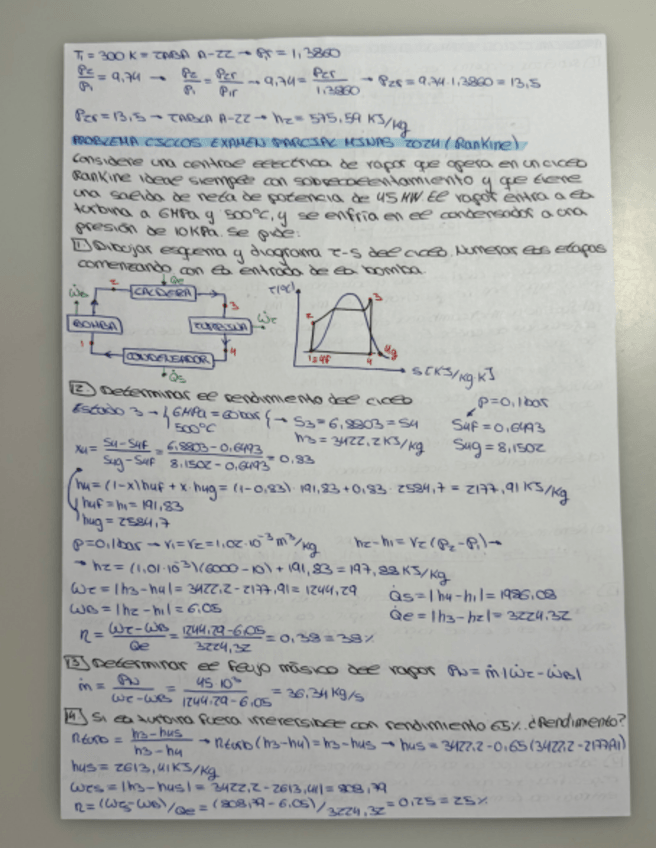 T1 = 300 K = TABLA A-22 → Pr = 1,3860
P2/P1 = 9,74 → P2/P1 = P2r/P1r → 9,74 = P2r/1,3860 → P2r = 9,74·1,3860 = 13,5
P2r = 13,5 → TABLA A-22 → h2 = 575,59 KJ/kg
PROBLEMA CICLOS EXAMEN PARCIAL MINAS 2024 (Rankine)
Considere una central eléctrica de vapor que opera en un ciclo
Rankine ideal siempre con sobrecalentamiento y que tiene
una salida de neta de potencia de 45 MW. El vapor entra a la
turbina a 6MPa y 500°C, y se enfría en el condensador a una
presión de 10KPa. Se pide:
1 Dibujar esquema y diagrama T-S del ciclo. Numerar las etapas
comenzando con la entrada de la bomba.
ẆB 2 CALDERA Q̇e 3
BOMBA TURBINA ẆT
1 CONDENSADOR 4
Q̇s
T(°C)
2 3
1=4f 4 4g
S[KJ/kg K]
2 Determinar el rendimiento del ciclo
Estado 3 → { 6MPa = 60bar } → S3 = 6,8803 = S4
500°C h3 = 3422,2 KJ/kg
P = 0,1bar
S4f = 0,6493
S4g = 8,1502
x4 = S4-S4f/S4g-S4f = 6,8803-0,6493/8,1502-0,6493 = 0,83
h4 = (1-x)h4f + x·h4g = (1-0,83)·191,83 + 0,83·2584,7 = 2177,91 KJ/kg
h4f = h1 = 191,83
h4g = 2584,7
P = 0,1bar → v1 = v2 = 1,02·10⁻³ m³/kg h2-h1 = v2(P2-P1) →
→ h2 = (1,01·10⁻³)(6000-10) + 191,83 = 197,88 KJ/kg
ẆT = |h3-h4| = 3422,2-2177,91 = 1244,29 Q̇s = |h4-h1| = 1986,08
ẆB = |h2-h1| = 6,05 Q̇e = |h3-h2| = 3224,32
η = ẆT-ẆB/Qe = 1244,29-6,05/3224,32 = 0,38 = 38%
3 Determinar el flujo másico del vapor PN = ṁ|ẆT-ẆB|
ṁ = PN/ẆT-ẆB = 45·10³/1244,29-6,05 = 36,34 kg/s
4 Si la turbina fuera irreversible con rendimiento 65%. ¿Rendimiento?
ηturb = h3-h4s/h3-h4 → ηturb(h3-h4) = h3-h4s → h4s = 3422,2-0,65(3422,2-2177,91)
h4s = 2613,41 KJ/kg
ẆTS = |h3-h4s| = 3422,2-2613,41 = 808,79
η = (ẆTS-ẆB)/Qe = (808,79-6,05)/3224,32 = 0,25 = 25%